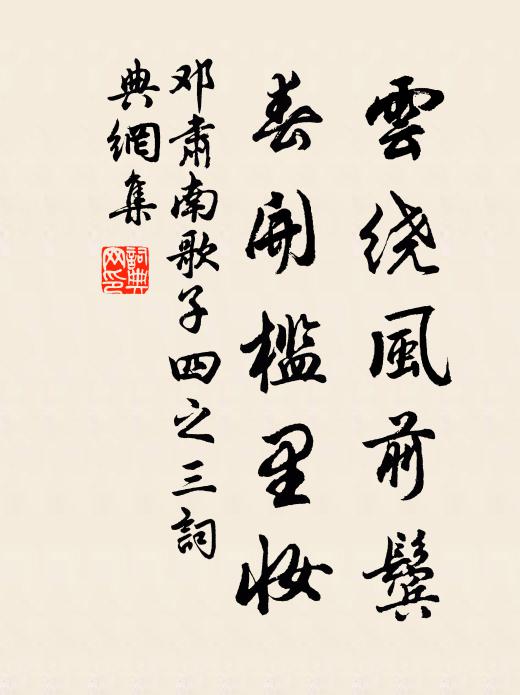 雲绕風前鬓
春開槛里妆
邓肃南歌子四之三詞
典網集
詞典
网印